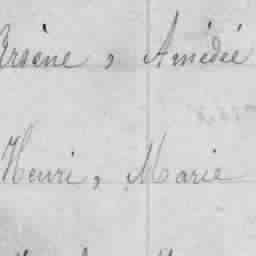 Arsène, Amédée
Henri, Marie